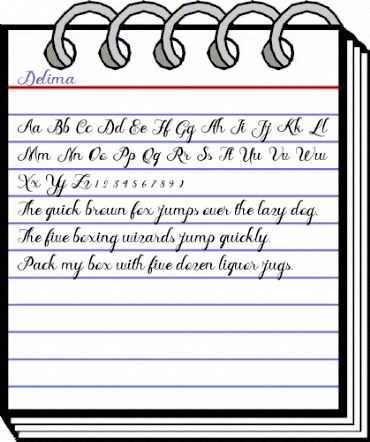 Delima
Aa Bb Cc Dd Ee Ff Gg Hh Ii Jj Kk Ll
Mm Nn Oo Pp Qq Rr Ss Tt Uu Vv Ww
Xx Yy Zz 1 2 3 4 5 6 7 8 9 )
The quick brown fox jumps over the lazy dog.
The five boxing wizards jump quickly.
Pack my box with five dozen liquor jugs.